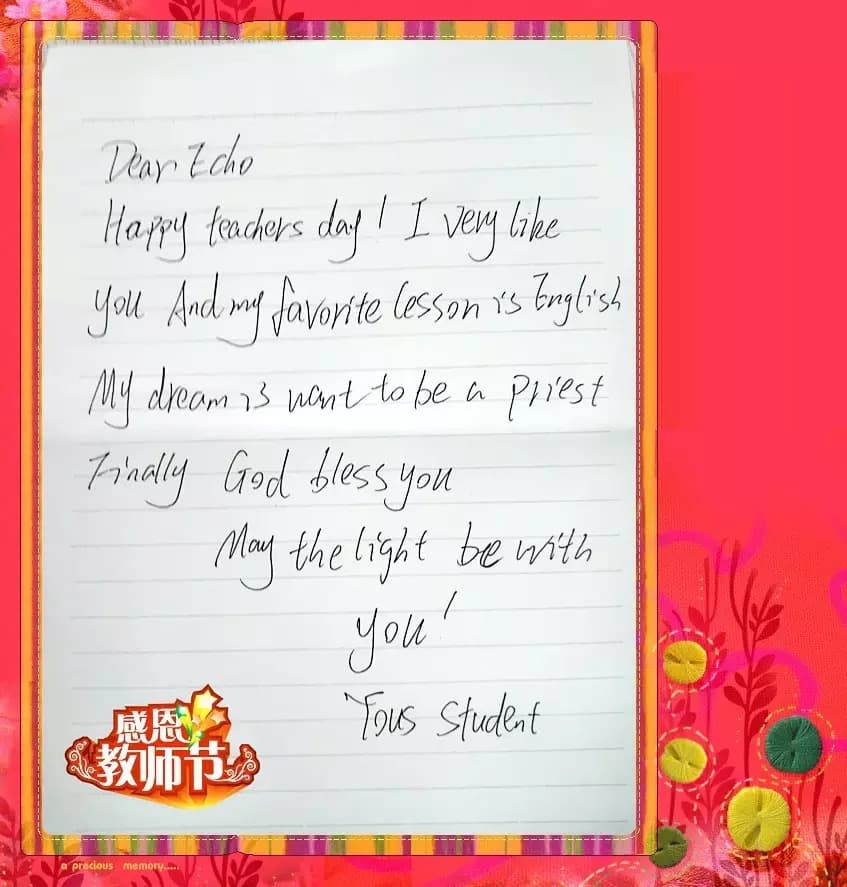 Dear Echo
Happy teachers day! I very like
you And my favorite lesson is English
My dream is want to be a priest
Finally God bless you
May the light be with
you!
Yous student
感恩
教师节
a precious memory.....